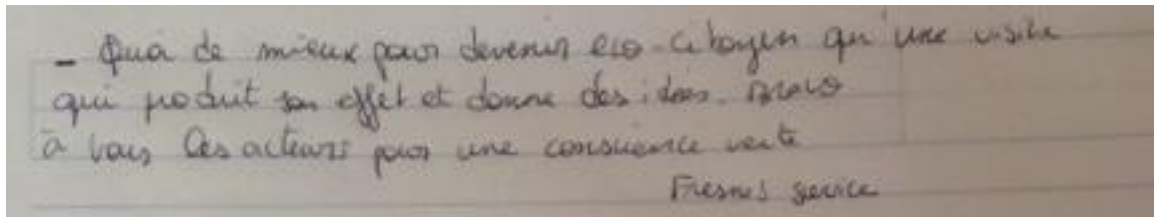 - Quoi de mieux pour devenir eco-citoyen qu'une visite
qui produit son effet et donne des idées. Bravo
à vous les acteurs pour une conscience verte
Fresnes service